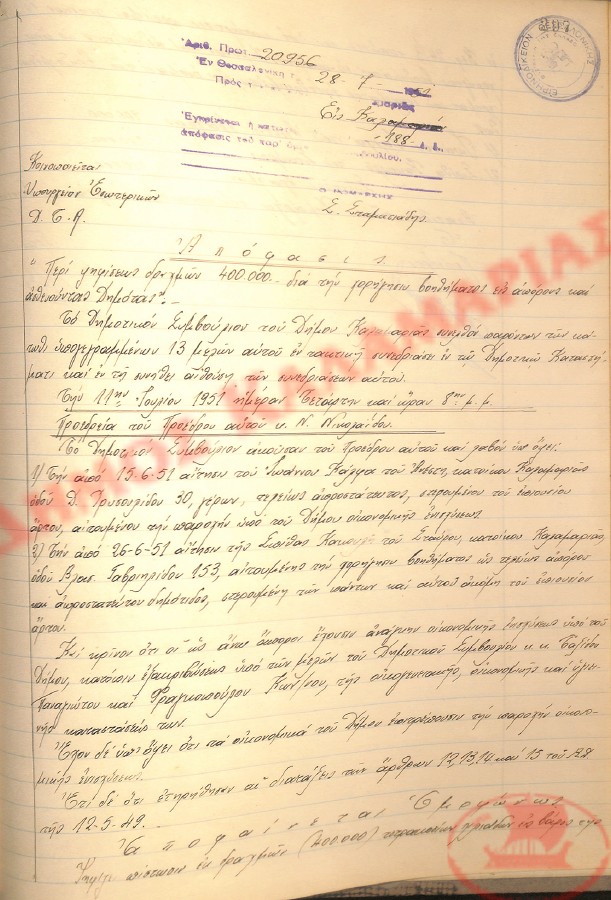 Ἀριθ. Πρωτ. 20956
Ἐν Θεσσαλονίκῃ 28-7-1951
Πρὸς
Εἰς Καλαμαριὰ
Ἐγκρίνεται ἡ 188 Δ. Σ.
ἀπόφασις τοῦ παρ'
Κοινοποιεῖται
Ὑπουργεῖον Ἐσωτερικῶν
Δ. Τ. Α.
Ο ΝΟΜΑΡΧΗΣ
Σ. Σταματιάδης
Ἀ π ό φ α σ ι ς
"Περὶ ψηφίσεως δραχμῶν 400.000.- διὰ τὴν χορήγησιν βοηθήματος εἰς ἀπόρους καὶ
ἀσθενοῦντας Δημότας".-
Τὸ Δημοτικὸν Συμβούλιον τοῦ Δήμου Καλαμαριᾶς συνελθὸν παρόντων τῶν κά-
τωθι ὑπογεγραμμένων 13 μελῶν αὐτοῦ ἐν τακτικῇ συνεδριάσει ἐν τῷ Δημοτικῷ Καταστή-
ματι καὶ ἐν τῇ συνήθει αἰθούσῃ τῶν συνεδριάσεων αὐτοῦ.
Τὴν 11ην Ἰουλίου 1951 ἡμέραν Τετάρτην καὶ ὥραν 8ην μ.μ.
Προεδρείᾳ τοῦ Προέδρου αὐτοῦ κ. Ν. Νικολαΐδου.
Τὸ Δημοτικὸν Συμβούλιον ἀκοῦσαν τοῦ Προέδρου αὐτοῦ καὶ λαβὸν ὑπ' ὄψει:
1) Τὴν ἀπὸ 15-6-51 αἴτησιν τοῦ Ἰωάννου τοῦ κατοίκου Καλαμαριᾶς
ὁδοῦ Χρυσουλίδου 30, γέρων, τελείως ἀπροστάτευτος, στερουμένου τοῦ ἐπιουσίου
ἄρτου, αἰτουμένου τὴν παροχὴν ὑπὸ τοῦ Δήμου οἰκονομικῆς ἐνισχύσεως.
2) Τὴν ἀπὸ 26-6-51 αἴτησιν τῆς τοῦ Σταύρου, κατοίκου Καλαμαριᾶς,
ὁδοῦ Βλασ. Γαβριηλίδου 153, αἰτουμένης τὴν χορήγησιν βοηθήματος ὡς τελείως ἀπόρου
καὶ ἀπροστατεύτου δημότιδος, στερουμένη τῶν πάντων καὶ αὐτοῦ ἀκόμη τοῦ ἐπιουσίου
ἄρτου.
Καὶ κρῖνον ὅτι οἱ ὡς ἄνω ἄποροι ἔχουσιν ἀνάγκην οἰκονομικῆς ἐνισχύσεως ὑπὸ τοῦ
Δήμου, κατόπιν ἐξακριβώσεως ὑπὸ τῶν μελῶν τοῦ Δημοτικοῦ Συμβουλίου κ.κ.
Παναγιώτου καὶ Φραγκοπούλου τῆς οἰκογενειακῆς, οἰκονομικῆς καὶ ὑγιει-
νῆς καταστάσεώς των.
Ἔχον δὲ ὑπ' ὄψει ὅτι τὰ οἰκονομικὰ τοῦ Δήμου ἐπιτρέπουσιν τὴν παροχὴν οἰκονο-
μικῆς ἐνισχύσεως.
Ἔτι δὲ ὅτι ἐτηρήθησαν αἱ διατάξεις τῶν ἄρθρων 12, 13, 14 καὶ 15 τοῦ
τῆς 12-5-49.
Ἀ π ο φ α ί ν ε τ α ι Ὁ μ ο φ ώ ν ω ς
Ψηφίζει πίστωσιν ἐκ δραχμῶν (400.000) τετρακοσίων χιλιάδων εἰς βάρος τῆς
ΔΗΜΟΣ ΚΑΛΑΜΑΡΙΑΣ